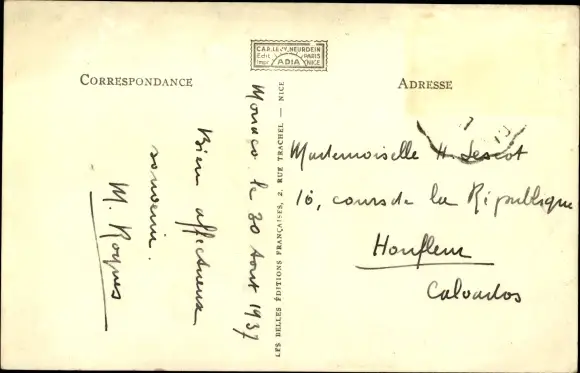 CORRESPONDANCE
CAP. LEVY, NEURDEIN
Edit. PARIS
Impr. ADIA NICE
ADRESSE
Monaco. le 30 Aout 1937
Bien affectueux
souvenir.
M. Roques
LES BELLES ÉDITIONS FRANÇAISES, 2, RUE TRACHEL — NICE
Mademoiselle H. Lescot
10, cours de la République
Honfleur
Calvados